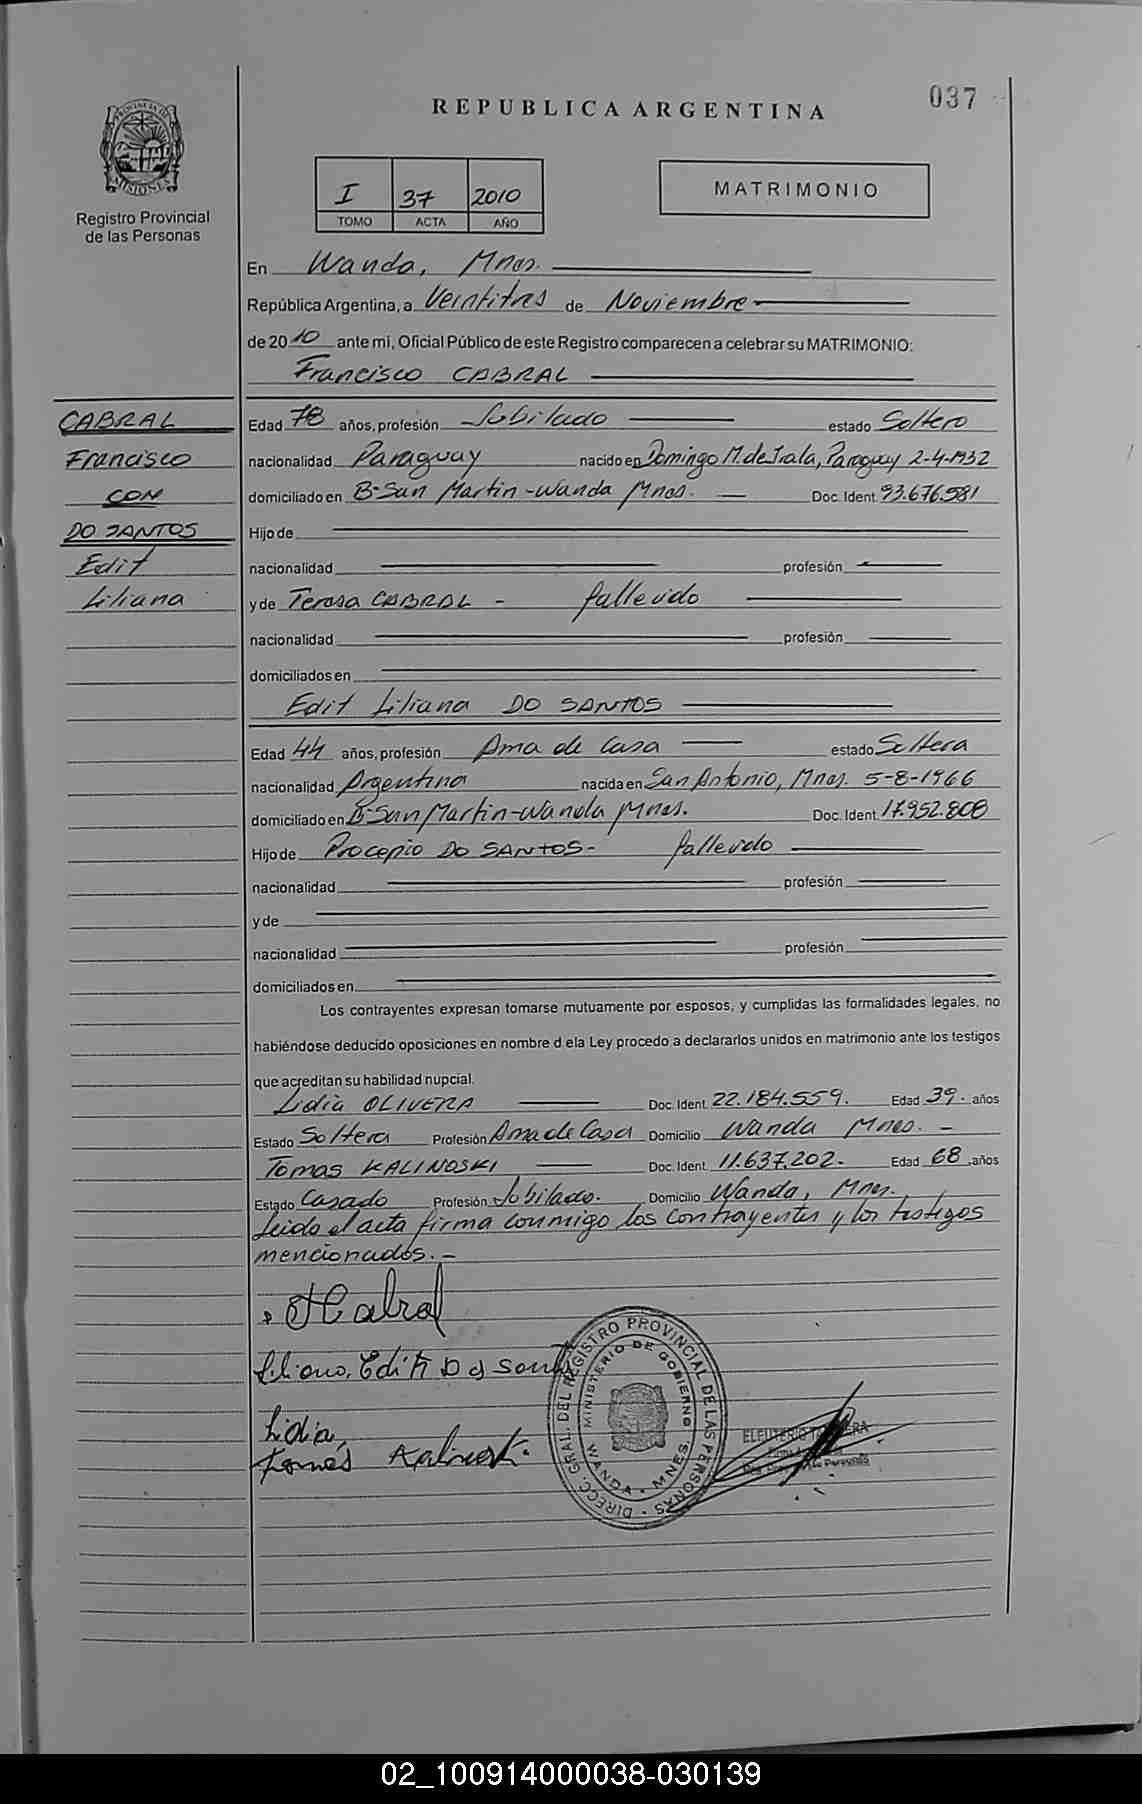 037
REPUBLICA ARGENTINA
PROVINCIA DE
MISIONES
Registro Provincial
de las Personas
I 37 2010
TOMO ACTA AÑO
MATRIMONIO
En Wanda, Mnes.
República Argentina, a Veintitres de Noviembre
de 2010 ante mi, Oficial Público de este Registro comparecen a celebrar su MATRIMONIO:
Francisco CABRAL
CABRAL
Francisco
CON
DO SANTOS
Edit
Liliana
Edad 78 años, profesión Jubilado estado Soltero
nacionalidad Paraguay nacido en Domingo M. de Irala, Paraguay 2-4-1932
domiciliado en B- San Martin - Wanda Mnes. Doc. Ident. 93.676.581
Hijo de
nacionalidad profesión
y de Teresa CABRAL - fallecido
nacionalidad profesión
domiciliados en
Edit Liliana DO SANTOS
Edad 44 años, profesión Ama de Casa estado Soltera
nacionalidad Argentina nacida en San Antonio, Mnes. 5-8-1966
domiciliado en B- San Martin - Wanda Mnes. Doc. Ident. 17.952.808
Hijo de Procopio DO SANTOS - fallecido
nacionalidad profesión
y de
nacionalidad profesión
domiciliados en
Los contrayentes expresan tomarse mutuamente por esposos, y cumplidas las formalidades legales, no
habiéndose deducido oposiciones en nombre d ela Ley procedo a declararlos unidos en matrimonio ante los testigos
que acreditan su habilidad nupcial.
Lidia OLIVERA Doc. Ident. 22.184.559. Edad 39. años
Estado Soltera Profesión Ama de Casa Domicilio Wanda Mnes. -
Tomas KALINOSKI Doc. Ident. 11.637.202- Edad 68 años
Estado Casado Profesión Jubilado. Domicilio Wanda, Mnes.
Leido el acta firma conmigo los contrayentes y los testigos
mencionados. -
Cabral
Liliana Edit Do Sant
Lidia
Tomás Kalinoski
DIRECC. GRAL. DEL REGISTRO PROVINCIAL DE LAS PERSONAS
MINISTERIO DE GOBIERNO
WANDA - MNES.
ELEUTERIO
02_100914000038-030139